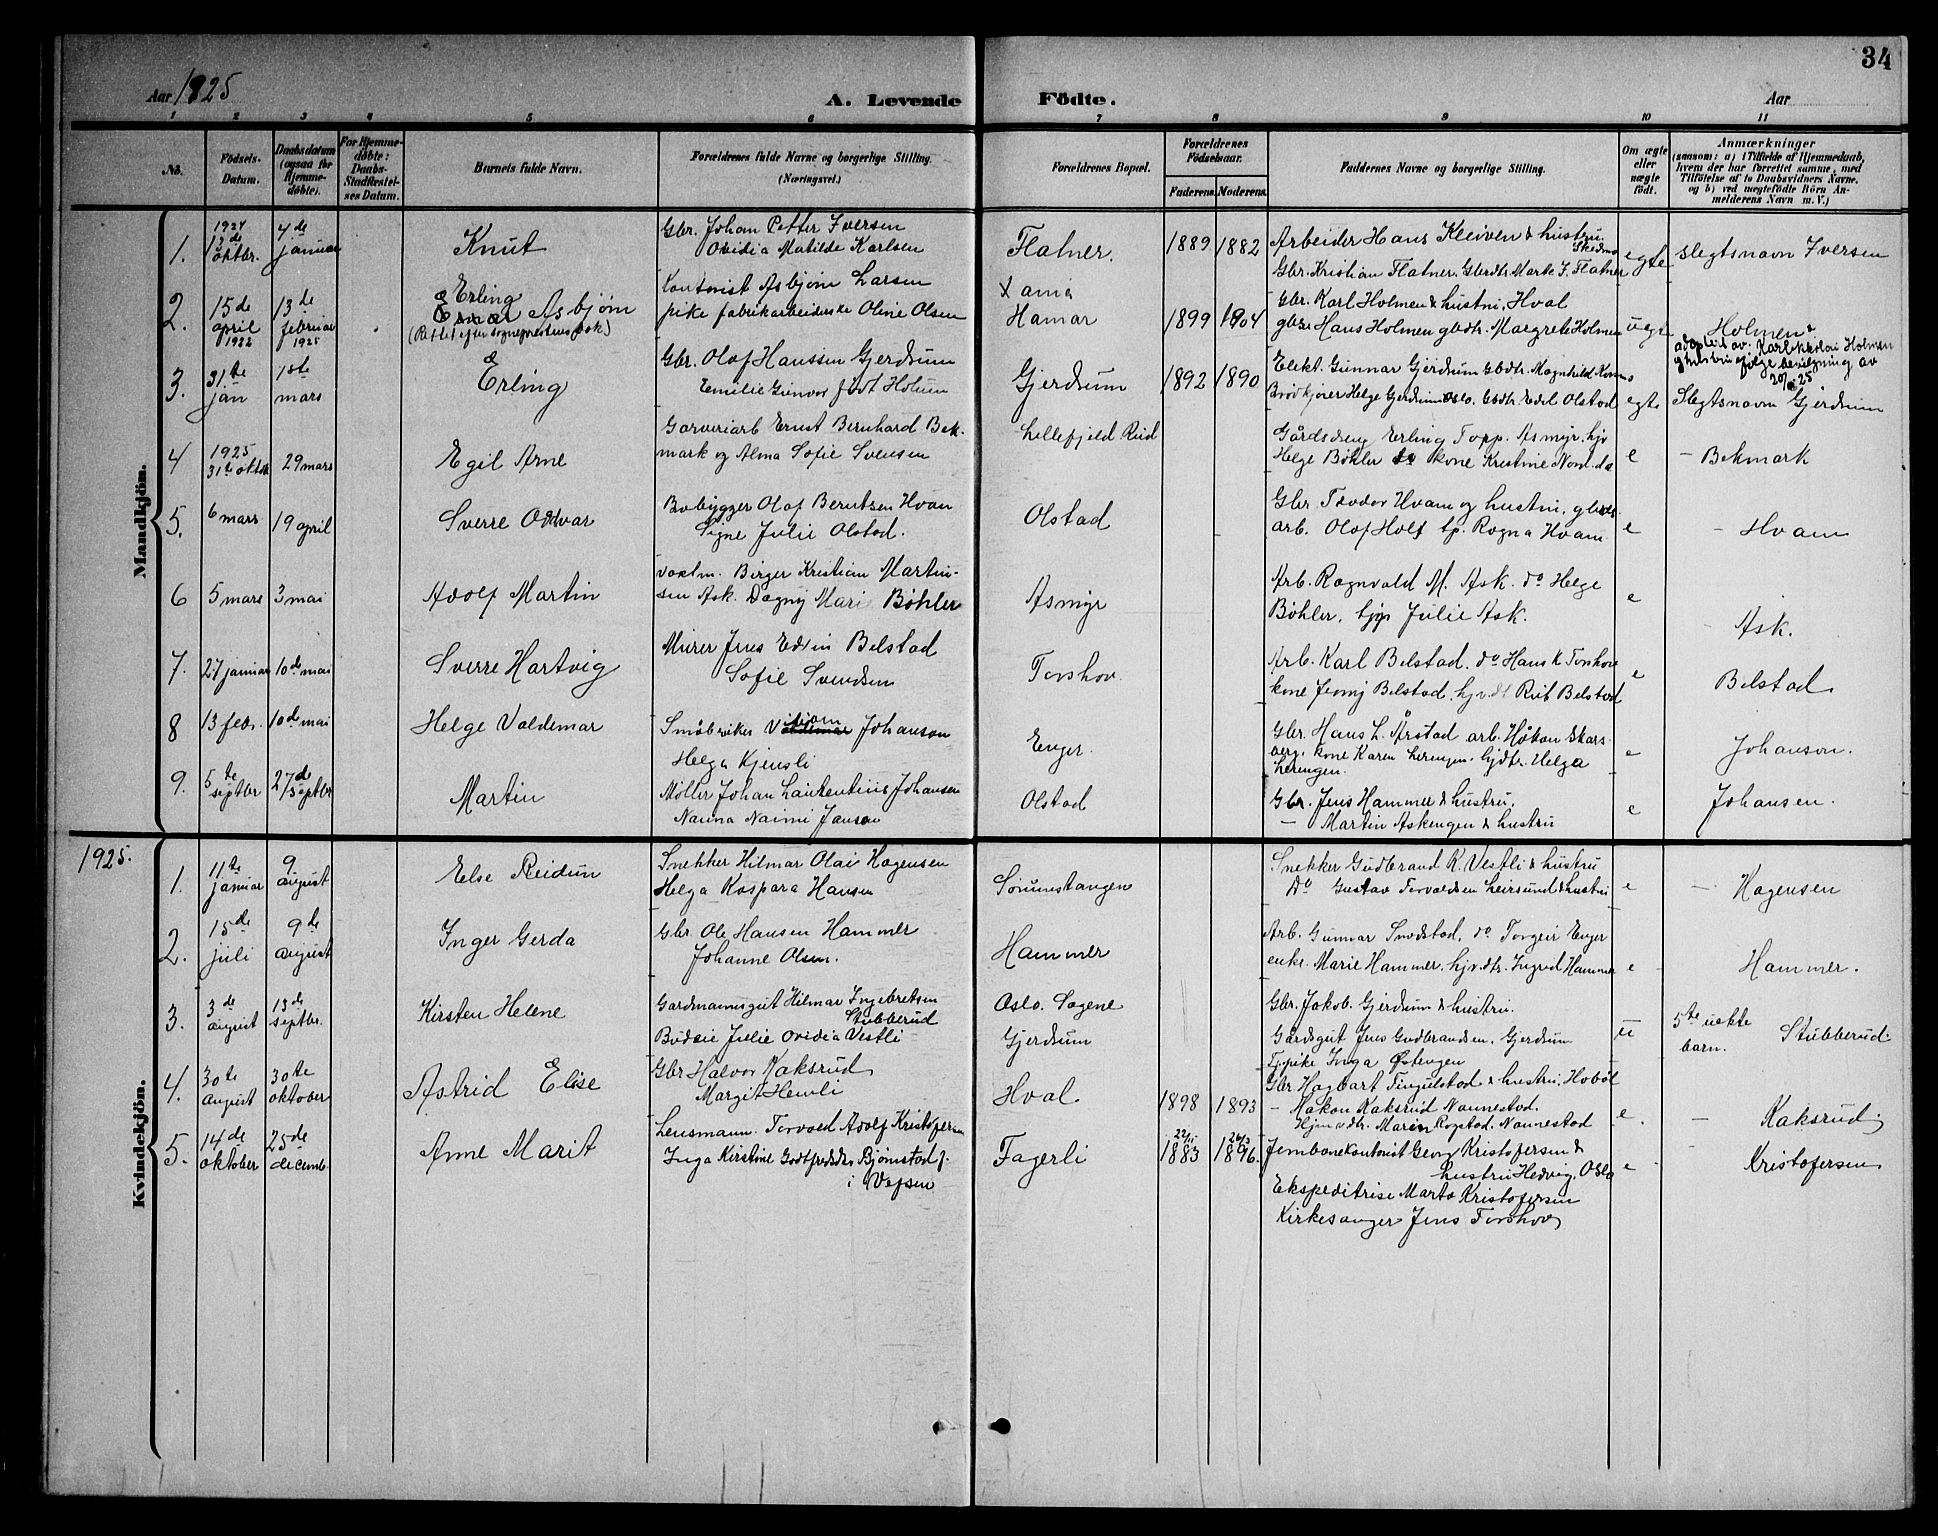 34
Aar 1925
A. Levende Födte.
Aar
1 2 3 4 5 6 7 8 9 10 11
No.
Födsels-Datum.
Daabsdatum (ogsaa for Hjemme-döbte).
For Hjemme-döbte: Daabs-Stadfæstel-ses Datum.
Barnets fulde Navn.
Forældrenes fulde Navne og borgerlige Stilling. (Næringsvei.)
Forældrenes Bopæl.
Forældrenes Födselsaar.
Faderens. Moderens.
Faddernes Navne og borgerlige Stilling.
Om ægte eller uægte födt.
Anmærkninger
(saasom: a) i Tilfælde af Hjemmedaab, hvem der har forrettet samme, med Tilföielse af to Daabsvidners Navne, og b) ved uegtefödte Börn An-melderens Navn m. V.)
Mandkjön.
1. 1924 13de oktbr. 4de januar
Knut
Gbr. Johan Petter Iversen
Ovidia Matilde Karlsen
Flatner. 1889 1882
Arbeider Hans Kleiven & hustru, Skedsmo
Gbr. Kristian Flatner. Gbrdtr. Marte J. Flatner
egte slegtsnavn Iversen
2. 15de april 1922 13de februar 1925
Erling
Einar Asbjørn
(Rettet efter sogneprestens bok)
Kontorist Asbjørn Larsen
pike fabrikarbeiderske Oline Olsen
Hamar 1899 1904
Gbr. Karl Holmen & hustru, Hval
gbr. Hans Holmen gbdtr. Margrete Holmen
uegte Holmen
adoptert av Karl Nikolai Holmen
& hustru ifølge bevilgning av
3. 31te jan 1ste mars
Erling
Gbr. Olaf Hanssen Gjerdrum
Emilie Gunvor født Holum
Gjerdrum 1892 1890
Elekt. Gunnar Gjerdrum Gbdtr. Magnhild
Brødkjører Helge Gjerdrum Oslo. Gbdtr. Edel Olstad
egte Slegtsnavn Gjerdrum
4 1925 31te oktbr 29 mars
Egil Arne
Garveriarb Ernst Bernhard Bek-
mark og Alma Sofie Svensen
Lillefjeld Rud
Gårdsdreng Erling Topp. Asmyr. hjv
Helge Bøhler do kone Kristine Nord. ds
e - Bekmark
5. 6 mars 19 april
Sverre Oddvar
Brobygger Olaf Berntsen Hvam
Signe Julie Olstad.
Olstad
Gbr. Teodor Hvam og hustru, gbrds.
arb. Olaf Holt tp. Ragna Hvam
e - Hvam
6 5 mars 3 mai
Adolf Martin
Birger Kristian Martin-
sen Ask. Dagny Marie Bøhler
Asmyr
Arb. Ragnvald M. Ask. do Helge
Bøhler, tjp Julie Ask.
e - Ask.
7. 27 januar 10de mai
Sverre Hartvig
Murer Jens Edvin Belstad
Sofie Svendsen
Torshov
Arb. Karl Belstad. do Hans K Torshov
kone Jenny Belstad, hjv.dt Rut Belstad
e Belstad
8 13 febr. 10de mai
Helge Valdemar
Småbruker Viljam Johanson
Helga Kjensli
Enger
Gbr. Hans L. Årstad arb. Håkon Skars-
berg. kone Karen Lerengen. hjdtr. Helga
Lerengen.
e Johanson.
9. 5te septbr 27de septbr
Martin
Møller Johan Laurentius Johansen
Nanna Naimi Janson
Olstad
Gbr. Jens Hammer & hustru.
- Martin Askengen & hustru
e Johansen.
1925.
Kvindekjön.
1. 11te januar 9 august
Else Reidun
Snekker Hilmar Olai Hagensen
Helga Kaspara Hansen
Sørumstangen
Snekker Gudbrand K. Vestli & hustru
Do Gustav Torvaldsen Leirsund & hustru
e - Hagensen
2. 15de juli 9de august
Inger Gerda
Gbr. Ole Hansen Hammer
Johanne Olsen.
Hammer
Arb. Gunnar Smedstad, do Torgeir Enger
enke. Marie Hammer, hjv.dtr. Ingrid Hammer
e Hammer.
3. 3de august 13de septbr.
Kirsten Helene
Gardmannsgut Hilmar Ingebretsen
Stubberud
Budeie Julie Ovidia Vestli
Oslo. Sagene
Gjerdrum
Gbr. Jakob. Gjerdrum & hustru.
Gårdsgut Jens Gudbrandsen, Gjerdrum
Tj.pike Inga Østengen
u 5te uekte barn. Stubberud
4. 30te august 30te oktober
Astrid Elise
Gbr Halvor Kaksrud
Margit Hemli
Hval. 1898 1893
Gbr Hagbart Tingulstad & hustru, Hobøl
- Håkon Kaksrud Nannestad.
Hjemv.dtr. Maren Rogstad. Nannestad
e. - Kaksrud
5. 14de oktober 25de decemb
Anne Marit
Lensmann. Torvald Adolf Kristofersen
Inga Kirstine Godtfredsdtr Bjørnstad f.
i Vefsen
Fagerli 22/11 1883 26/3 1896.
Jernbanekontorist Georg Kristofersen &
hustru Hedvig, Oslo
Ekspeditrise Marta Kristofersen
Kirkesanger Jens Torshov
e Kristofersen